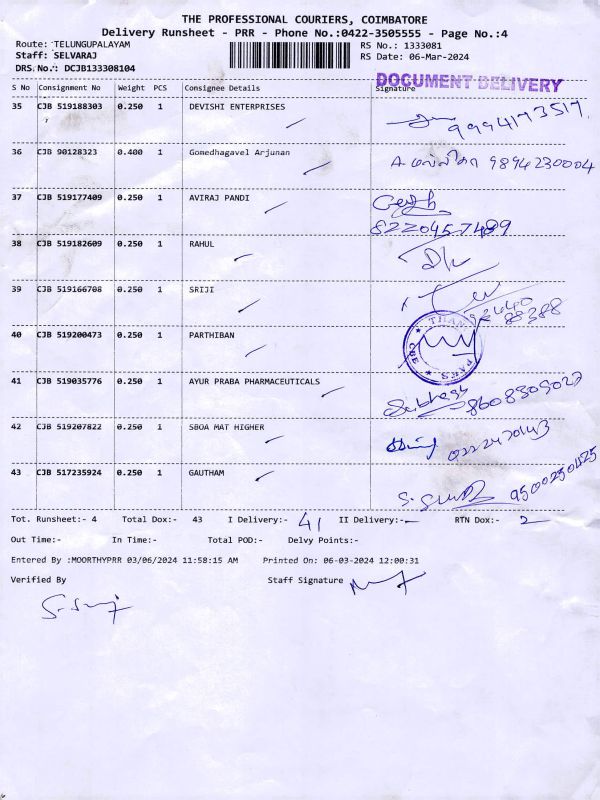 THE PROFESSIONAL COURIERS, COIMBATORE
Delivery Runsheet - PRR - Phone No.:0422-3505555 - Page No.:4
Route: TELUNGUPALAYAM RS No.: 1333081
Staff: SELVARAJ RS Date: 06-Mar-2024
DRS No.: DCJB133308104
DOCUMENT DELIVERY
S No Consignment No Weight PCS Consignee Details Signature
35 CJB 519188303 0.250 1 DEVISHI ENTERPRISES
9994173517
36 CJB 90128323 0.400 1 Gomedhagavel Arjunan
9894230004
37 CJB 519177409 0.250 1 AVIRAJ PANDI
38 CJB 519182609 0.250 1 RAHUL
39 CJB 519166708 0.250 1 SRIJI
40 CJB 519200473 0.250 1 PARTHIBAN
41 CJB 519035776 0.250 1 AYUR PRABA PHARMACEUTICALS
42 CJB 519207822 0.250 1 SBOA MAT HIGHER
43 CJB 517235924 0.250 1 GAUTHAM
9500250425
Tot. Runsheet:- 4 Total Dox:- 43 I Delivery:- 41 II Delivery:- RTN Dox:- 2
Out Time:- In Time:- Total POD:- Delvy Points:-
Entered By :MOORTHYPRR 03/06/2024 11:58:15 AM Printed On: 06-03-2024 12:00:31
Verified By Staff Signature